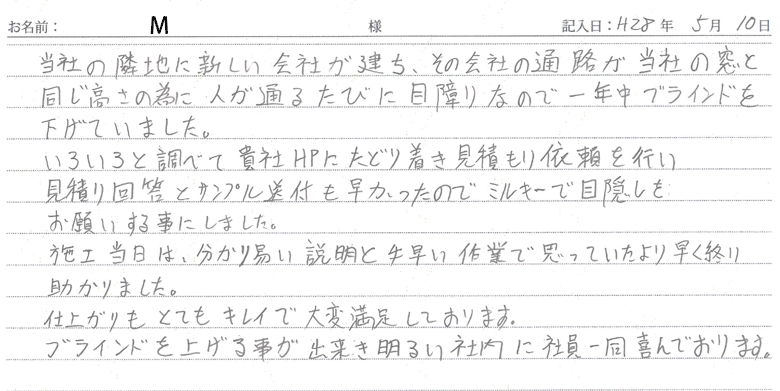 お名前： M 様 記入日：H28年 5月 10日
当社の隣地に新しい会社が建ち、その会社の通路が当社の窓と
同じ高さの為に人が通るたびに目障りなので一年中ブラインドを
下げていました。
いろいろと調べて貴社HPにたどり着き見積もり依頼を行い
見積り回答とサンプル送付も早かったのでミルキーで目隠しを
お願いする事にしました。
施工当日は、分かり易い説明と手早い作業で思っていたより早く終り
助かりました。
仕上がりもとてもキレイで大変満足しております。
ブラインドを上げる事が出来き明るい社内に社員一同喜んでおります。